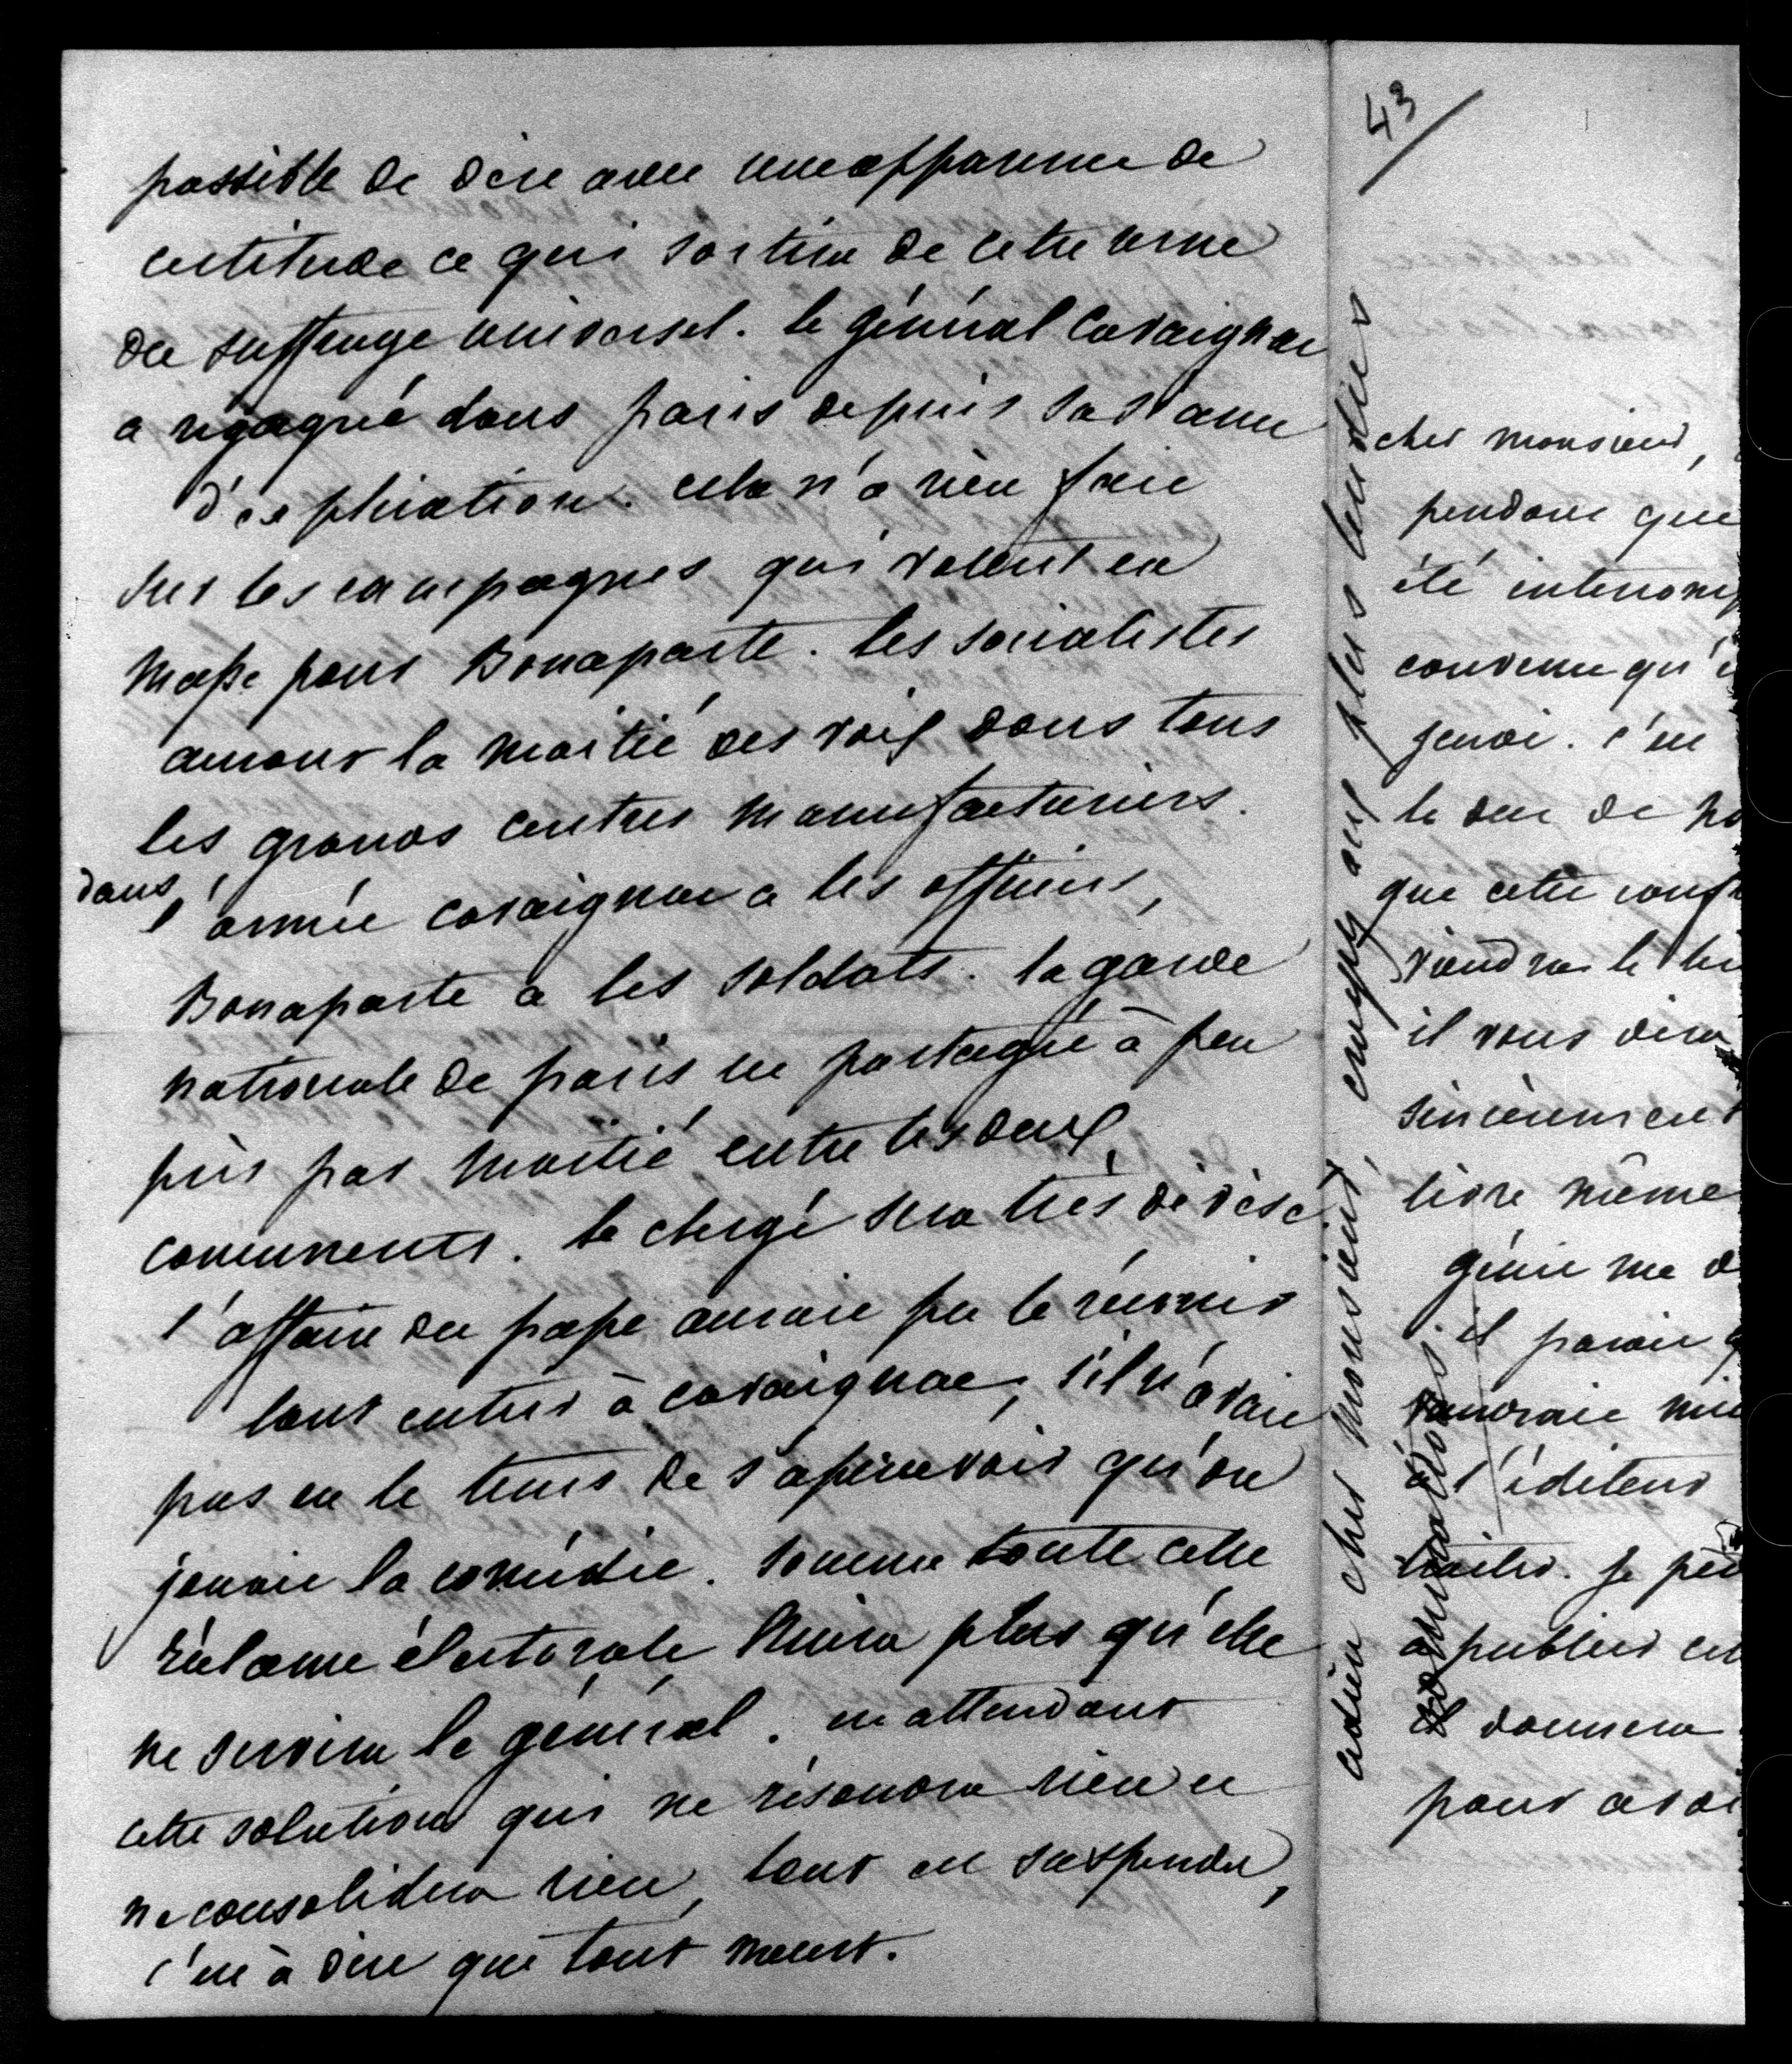 possible de dire avec une apparence de
certitude ce qui sortira de cette urne
du suffrage universel. le général Cavaignac
a regagné dans paris depuis sa séance
d'explication. cela n'a rien fait
sur les campagnes qui votent en
masse pour Bonaparte. les socialistes
auront la moitié des voix dans tous
les grands centres manufacturiers.
dans l'armée cavaignac a les officiers,
Bonaparte a les soldats. la garde
nationale de paris est partagée à peu
près par moitié entre les deux
concurrents. le clergé sera très divisé
l'affaire du pape aurait pu le réunir
tout entier à cavaignac, s'il n'avait
pas eu le tems de s'apercevoir qu'on
jouait la comédie. somme toute cette
réclame électorale nuira plus qu'elle
ne servira le général. en attendant
cette solution qui ne résoudra rien et
ne consolidera rien, tout est suspendu,
c'est à dire que tout meurt.
adieu cher monsieur, croyez aux plus tendres
43
cher monsieur,
pendant que
été interromp
convenu qu'i
c'est
le duc de no
que cette conf
viendra le
il vous dira
sincèrement
livre même
génie me d
il parait q
vaudrait mie
à l'éditeur
traiter. je
à publier cet
il donnera
pour avoi